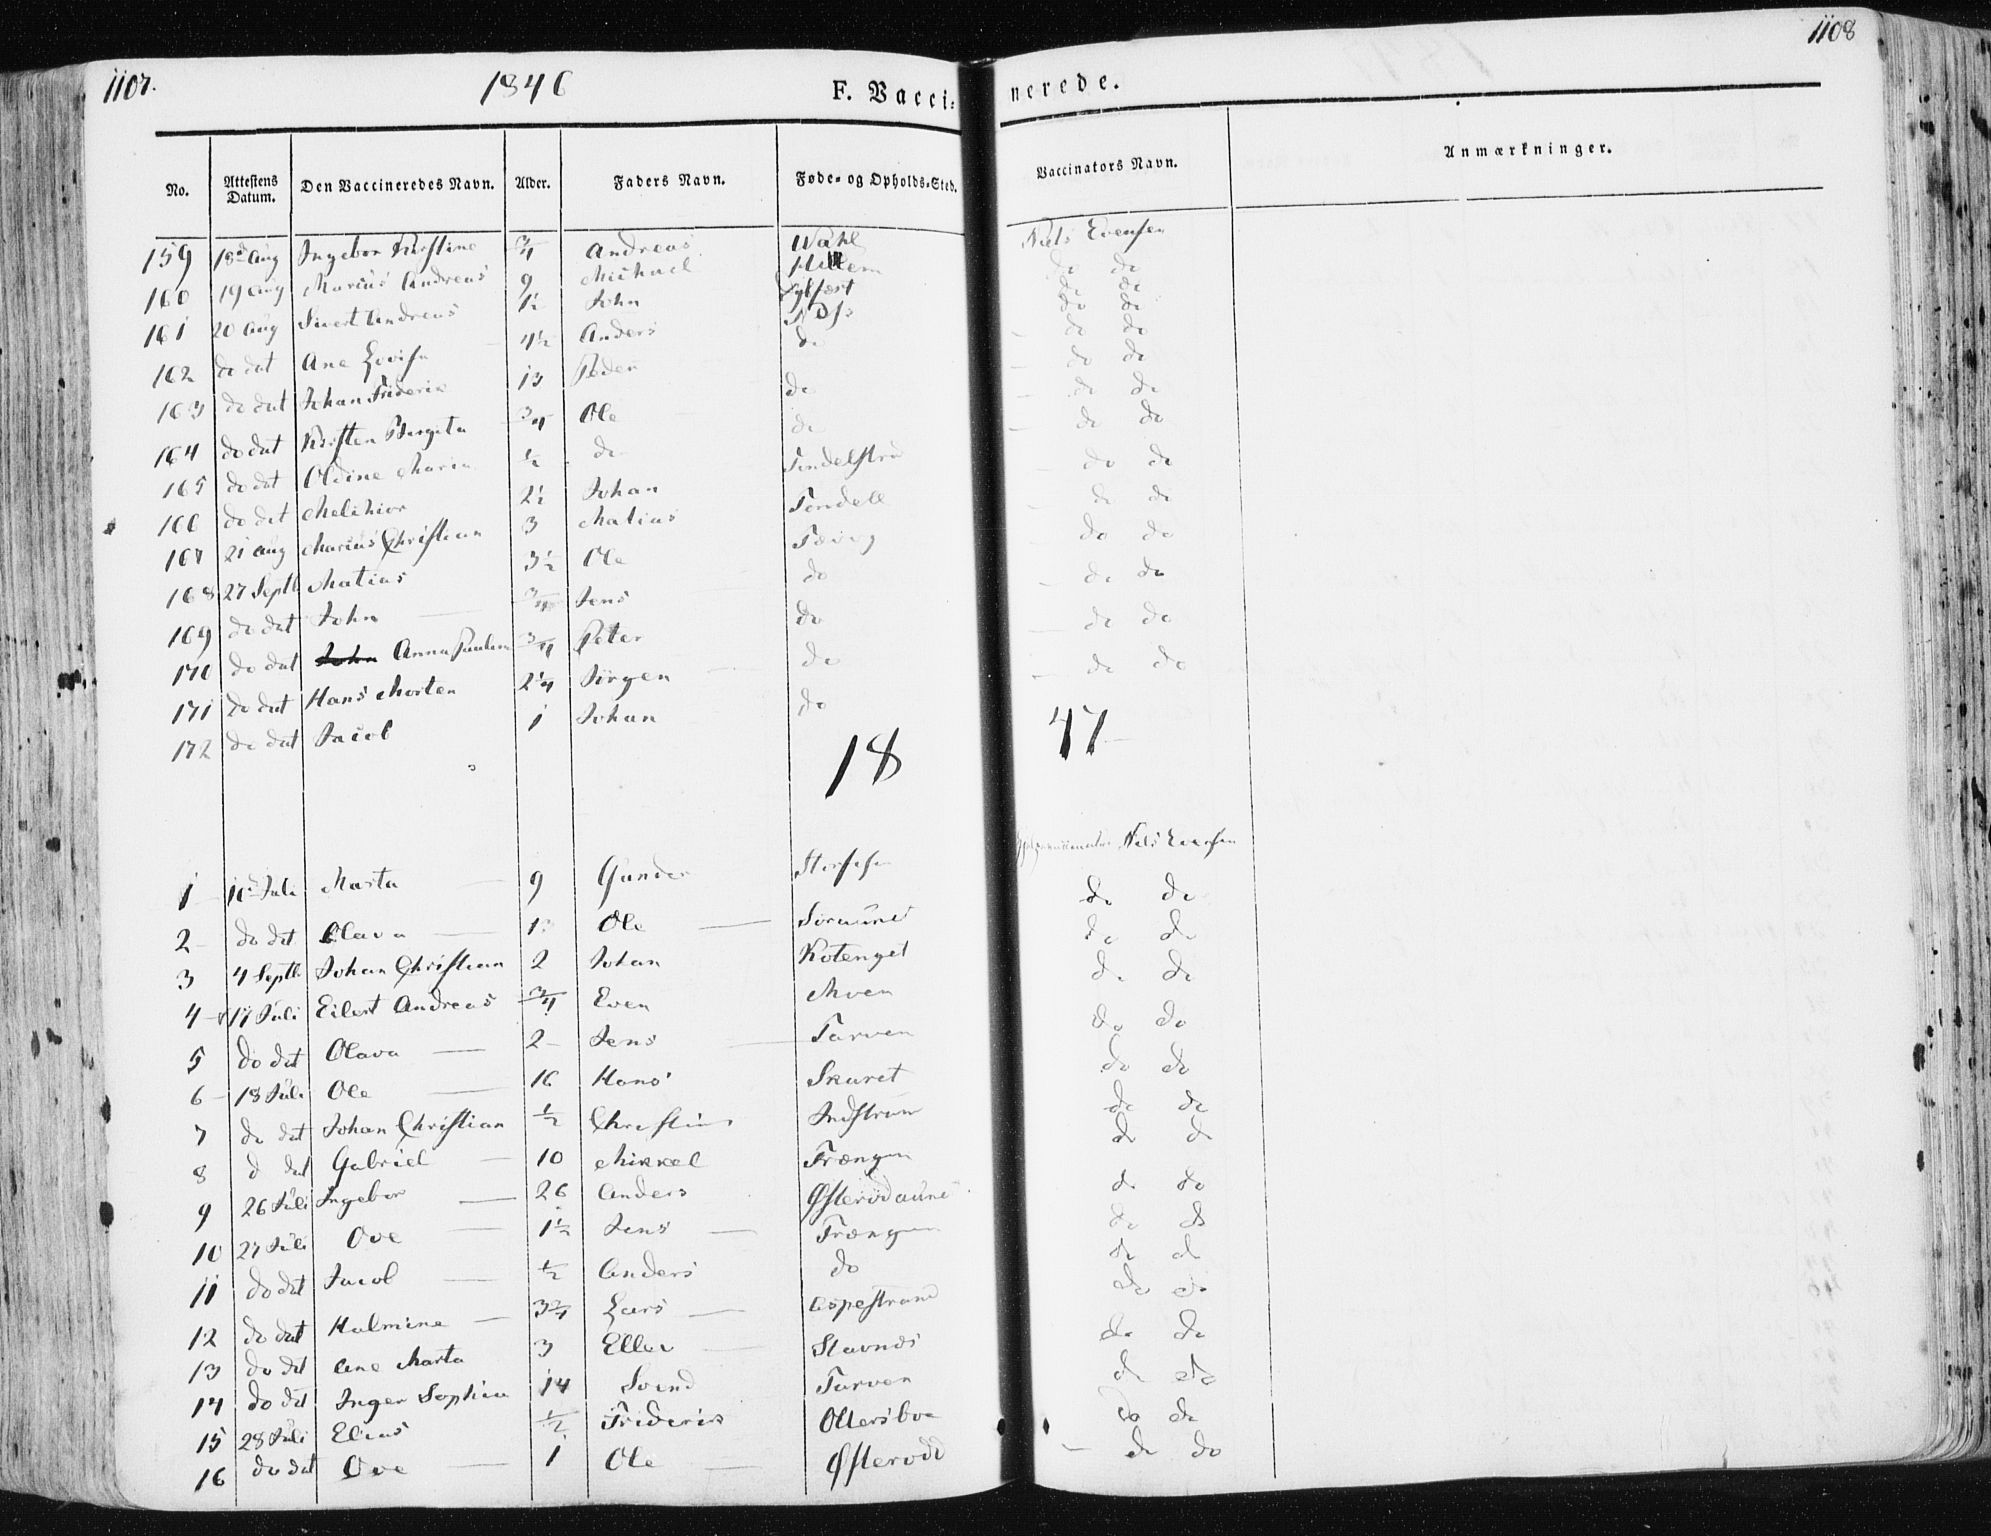 1107.
1846
F. Vacci-
nerede.
1108
No. Attestens Datum. Den Vaccineredes Navn. Alder. Faders Navn. Føde- og Opholds-Sted. Vaccinators Navn. Anmærkninger.
159 18d Aug Ingebor Kirstine 3/4 Andreas Wahl Niels Evensen
160 19 Aug Marius Andreas 9 Michael do do
161 20 Aug Sivert Andreas 1½ John do do
162 do dat Ane Lovisa 4½ Anders do do do
163 do dat Johan Friderik 13 Peder do do do
164 do dat Kirsten Birgita 3/4 Ole do do do
165 do dat Oldine Maria ½ do do do
166 do dat Melchior 2½ Johan Tendell do do
167 21 Aug Marius Christian 3 Matias do do
168 27 Septb Matias 3½ Ole do do do
169 do dat John Jens do do do
170 do dat Anna Paulin 3/4 Peter do do do
171 do dat Hans Morten 2¼ Jörgen do
172 do dat Jacob 1 Johan
18 47
1 Juli Marta 9 Gunder Niels Evensen
2 do dat Olava Ole do do
3 4 Septb Johan Christian 2 Johan Kotenget do do
4 17 Juli Eilert Andreas 3/4 Even Moen do do
5 do dat Olava 2 Jens Tarven do do
6 18 Juli Ole 16 Hans Skaret do do
7 do dat Johan Christian ½ Indstrøm do do
8 d dat Gabriel 10 Mikkel Trængen do do
9 26 Juli Ingebor 26 Anders Østerødaune do do
10 27 Juli Ove 1½ Jens Trængen do do
11 do dat Jacob ½ Anders do do do
12 do dat Halmine Lars Aspestrand do do
13 do dat Ane Marta 3 Ellev Stavnes do do
14 do dat Inger Sophia 14 Svend Tarven do do
15 28 Juli Elias ½ Friderik Ottersboe do do
16 do dat Ove 1 Ole Østerødd do do